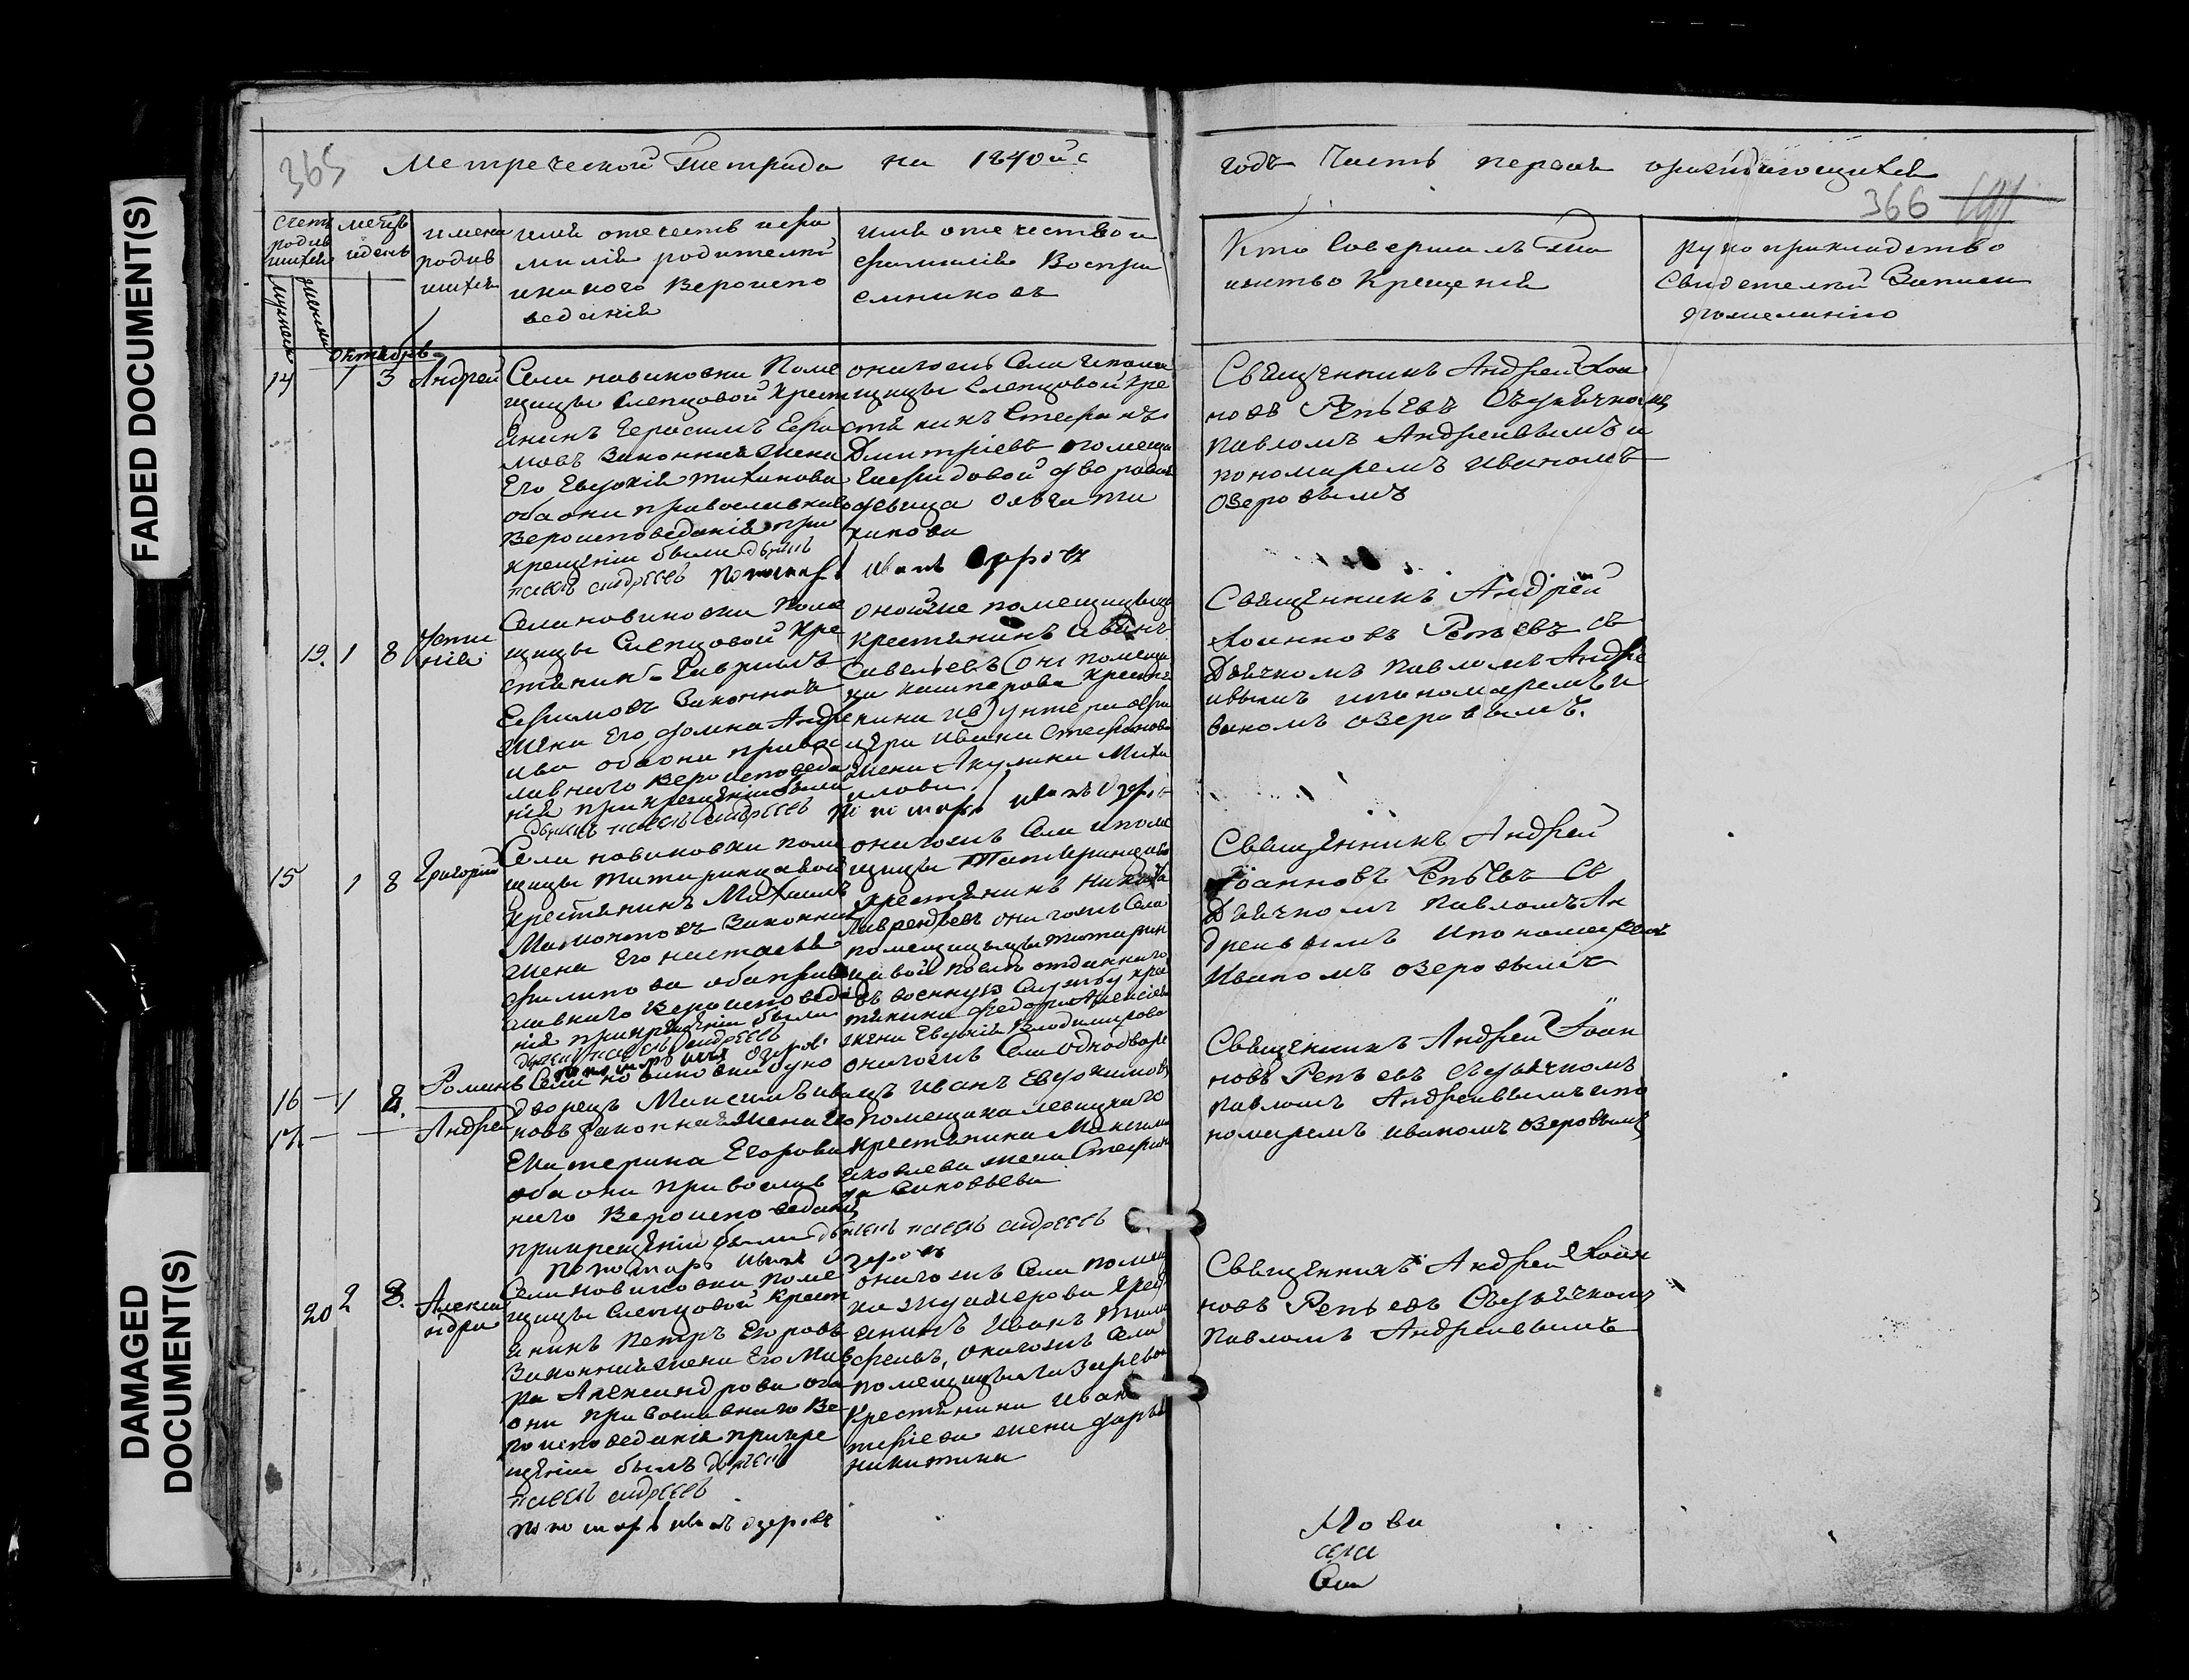 FADED DOCUMENT(S)
DAMAGED
DOCUMENT(S)
365 Метреческой Тетрада на 1840й с
годъ Часть первая ораждающихся
366
Счетъ родив шихся
мужеска
женска
месецъ иденъ
имена
родив
шихся
имя отечеств ифа
милия родителей
икакого Вероиспо
ведания
имя отечество и
фамилия Воспри
емниковъ
Кто Совершалъ Та
инство Крещения
рукоприкладство
Свидетелей Записи
пожеланию
октября
14 1 3 Андрей
Села новиковки Поме
щицы Слепцовой Крест
янинъ Герасимъ Ефи
мовъ Законная Жена
Его Евдокия тиханова
оба они православнаго
Вероисповедания при
крещении были дьячекъ
павелъ андреевъ пономарь Иванъ Озеровъ
онагожъ Села ипоме
щицы Слепцовой Кре
стянинъ Стефанъ
Дмитриевъ помещи
дворовая
девица Ольга ти
ханова
Священникъ Андрей Иоан
новъ Репьевъ Съдьячкомъ
Павломъ Андреивымъ и
пономаремъ Иваномъ
Озеровымъ
19. 1 8 Усти
ния
Села новиковки Поме
щицы Слепцовой Кре
стянинъ Гавриилъ
Ефимовъ Законная
Жена Его домна Андре
ива оба они право
лавнаго Вероисповеда
ния прикрещении были
дьячекъ павелъ андреевъ пономарь Иванъ Озеровъ
онойже помещицы
Крестянинъ Иванъ
Савельевъ
унтеръ офи
цера Ивана Стефанова
Жена Акулина Миха
илова
Священникъ Андрей
Иоанновъ Репьевъ съ
Дьячкомъ Павломъ Андре
ивымъ ипономаремъ и
ваномъ Озеровымъ.
15 1 8 Григорий
Села новиковки поме
щицы Татаринцовой
Крестянинъ Михаилъ
Законная
Жена Его настасья
филипова оба право
славнаго Вероисповеда
ния прикрещении были
дьячекъ павелъ андреевъ
пономарь Иванъ Озеровъ
онагожъ Села ипоме
щицы Татаринцовой
крестянинъ Никита
Лаврентьевъ онагожъ Села
помещицы татарин
цовой отданнаго
въ военную Службу кре
стянина федора Алексеева
жена Евдокия Владимирова
Священникъ Андрей
Иоанновъ Репьевъ Съ
Дьячкомъ Павломъ Ан
дреивымъ Ипономаремъ
Иваномъ Озеровымъ
16 — 1 8. Романъ
17 — — Андрей
Села новиковки одно
дворецъ Максимъ Ива
новъ Законная Жена Его
Екатерина Егорова
оба они православ
наго Вероисповедания
прикрещении были дьячекъ павелъ андреевъ
пономарь Иванъ Озеровъ
онагожъ Села однодворе
цъ Иванъ Евдокимовъ
помещика левицкаго
Крестянина Максима
Яковлева жена Стефани
да Зиновьева
Священникъ Андрей Иоан
новъ Репьевъ Съдьячкомъ
Павломъ Андреивымъ ипо
номаремъ Иваномъ Озеровымъ
20 2 8. Алекса
ндра
Села новиковки поме
щицы Слепцовой Крест
янинъ Петръ Егоровъ
Законная Жена Его Мав
ра Александрова оба
они православнаго Ве
роисповедания прикре
щении былъ дьячекъ
павелъ андреевъ
пономарь Иванъ Озеровъ
онагожъ Села помещи
ка крест
янинъ Иванъ Тимо
феевъ, онагожъ Села
помещицы Лазаревой
Крестянина Ивана
жена дарья
никитина
Священникъ Андрей Иоан
новъ Репьевъ Съдьячкомъ
Павломъ Андреивымъ
Нови
села
Села